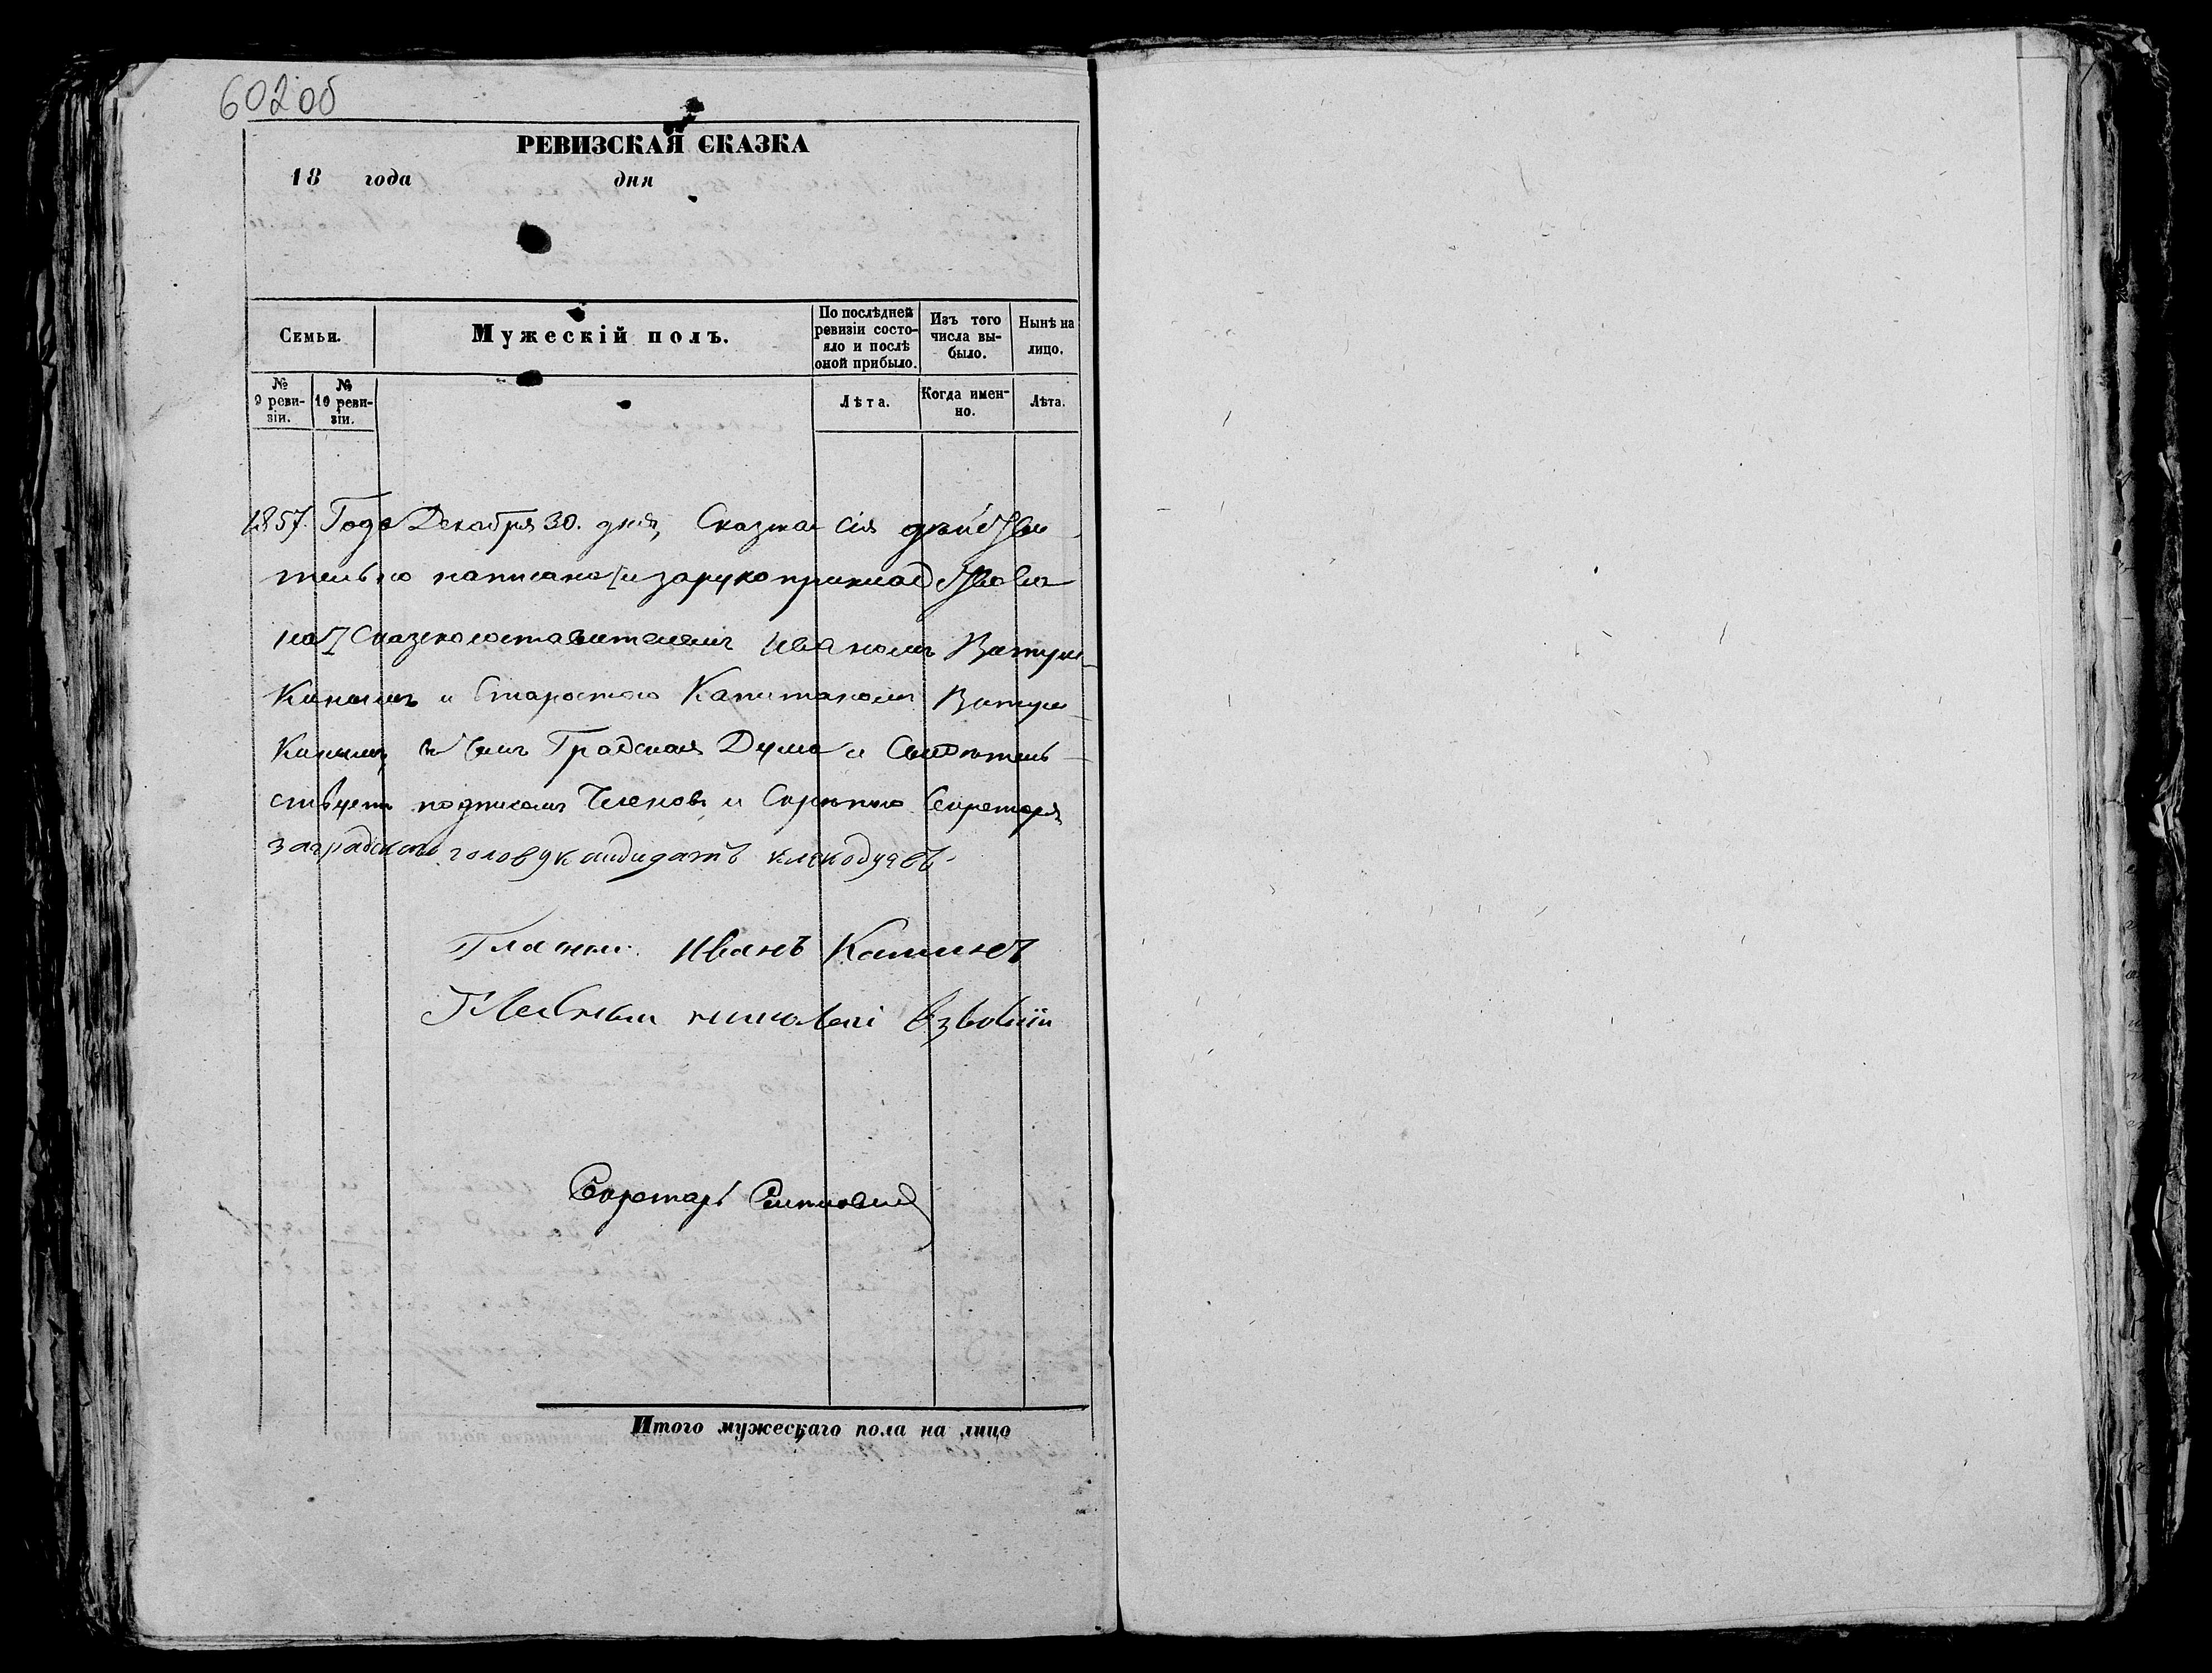 602об
РЕВИЗСКАЯ СКАЗКА
18 года дня
Семьи.
Мужескій полъ.
По послѣдней ревизіи состояло и послѣ оной прибыло.
Изъ того числа выбыло.
Нынѣ на лицо.
№ 9 ревизіи.
№ 10 ревизіи.
Лѣта.
Когда именно.
Лѣта.
1857. Года Декабря 30. дня, Сказка сія дѣйстви
тельно написана и зарукоприкладствова
на Сказкосоставителемъ Иваномъ Ватул
Кинымъ и Старостою Капитаномъ Ватул
Кинымъ, въ чемъ Градская Дума и Свидѣтель
ствуетъ подписомъ Членовъ и Скрѣпою Секретаря,
За градского голову кандидатъ
Гласный Иванъ
Гласный николай
Секретарь
Итого мужескаго пола на лицо